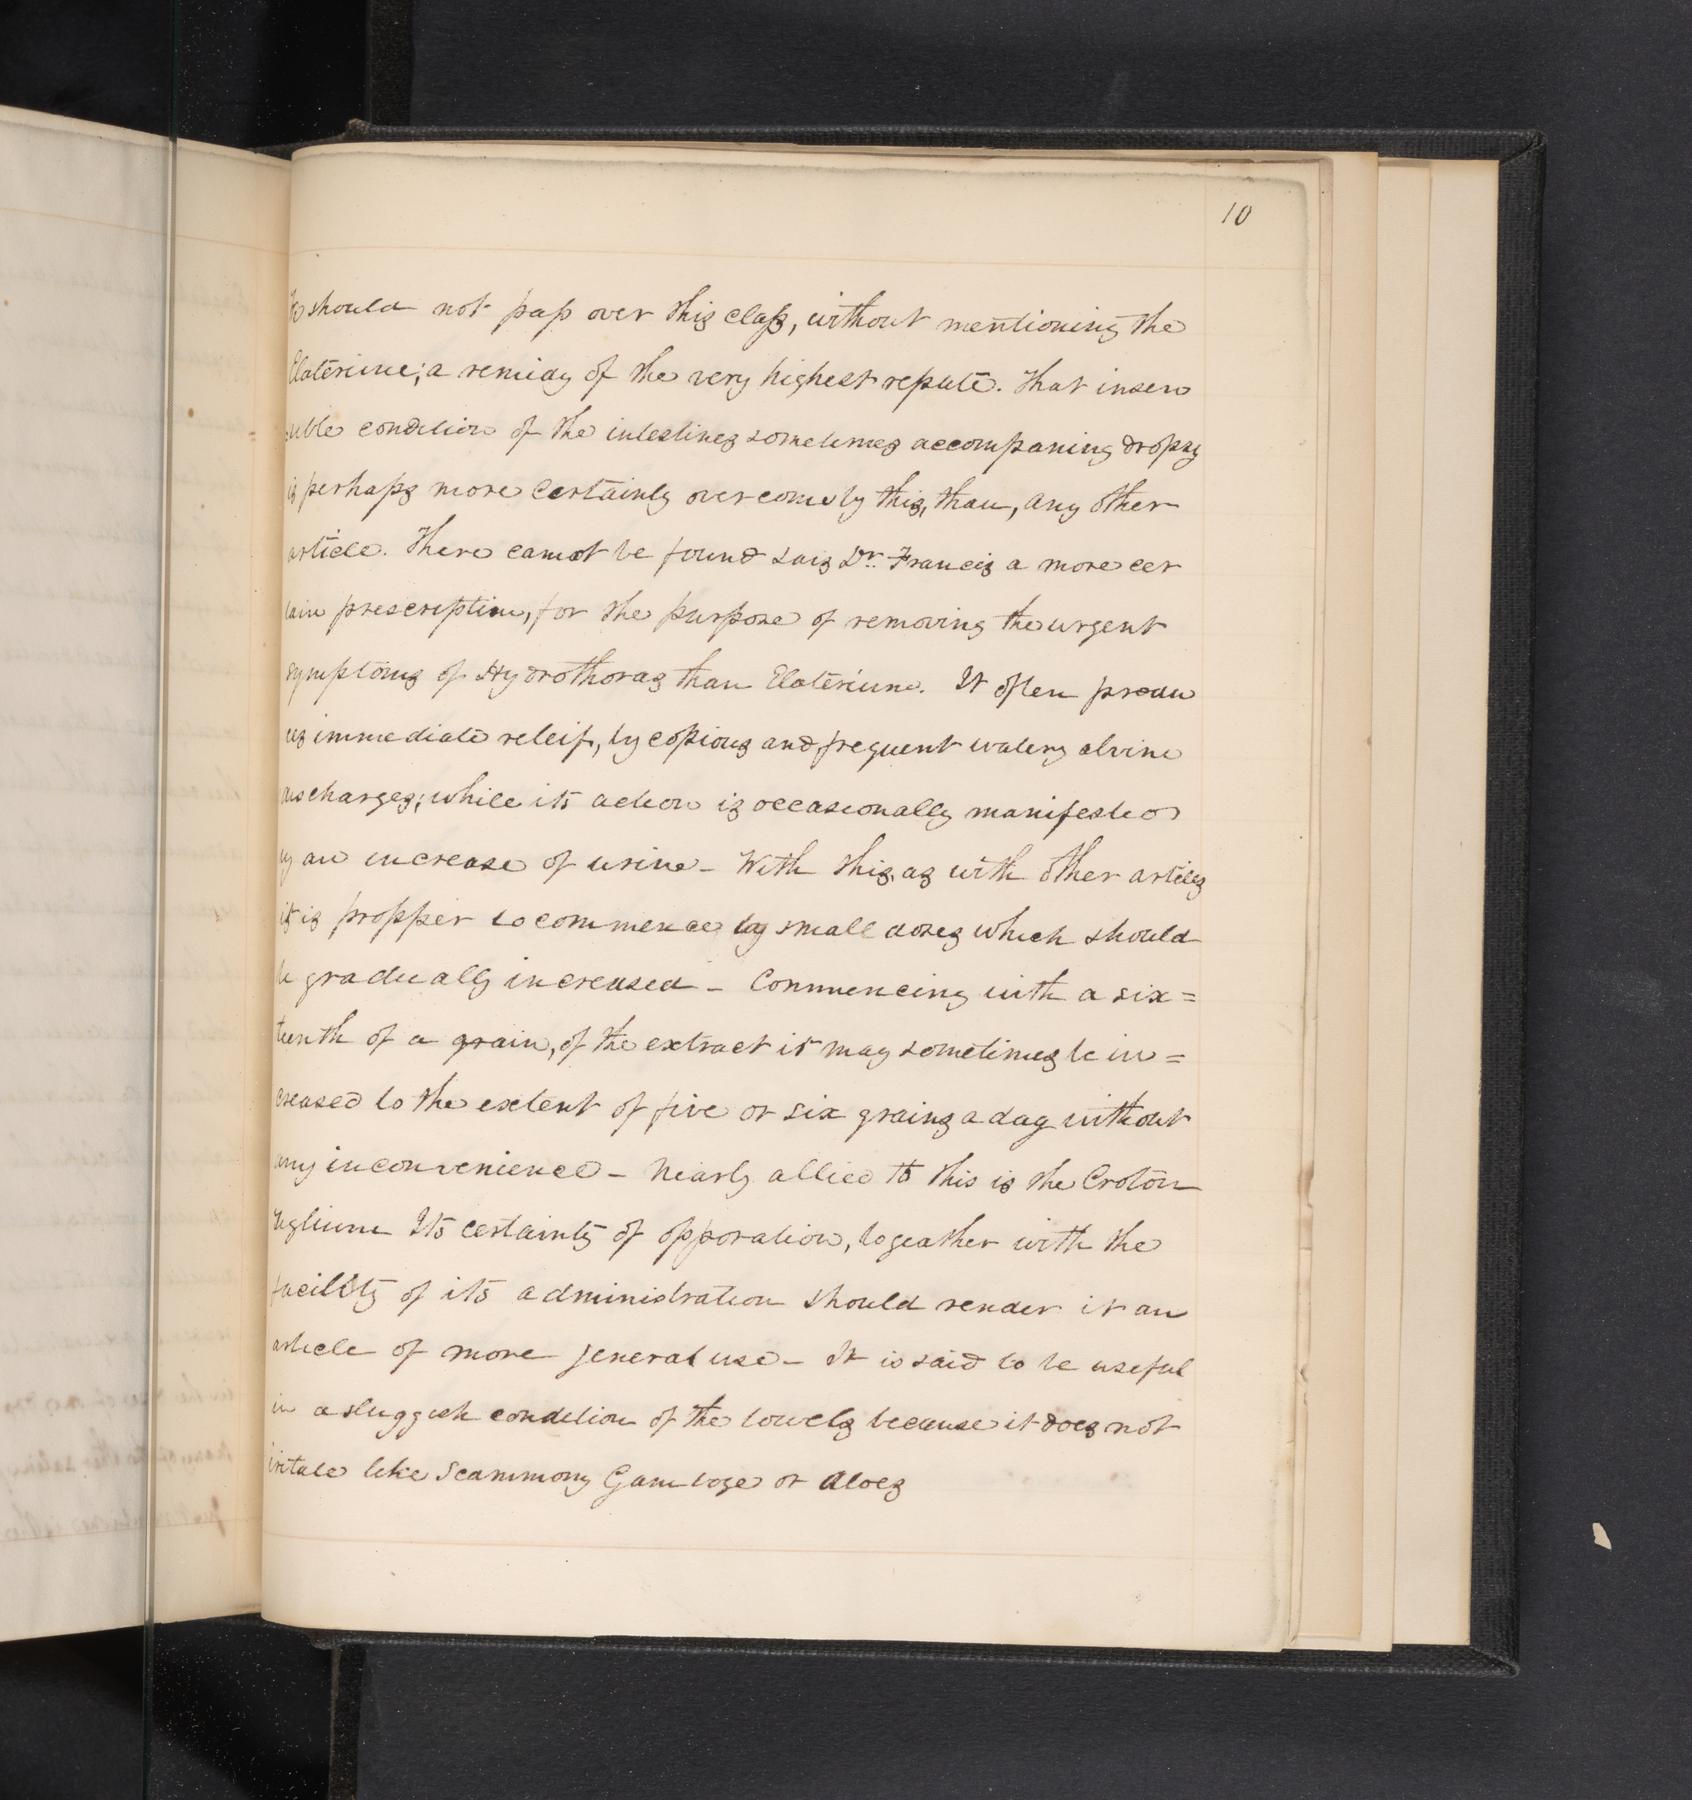 10
We should not pass over this class, without mentioning the
Elaterium; a remidy of the very highest repute. That insen
sible condition of the intestines sometimes accompaning dropsy
is perhaps more certainly overcome by this, than, any other
article. There cannot be found says Dr. Francis a more cer
tain prescription, for the purpose of removing the urgent
symptoms of Hydrothorax than Elaterium. It often produ
ces immediate releif, by copious and frequent watery alvine
discharges; while its action is occasionally manifested
by an increase of urine - With this, as with other articles
it is propper to commence by small doses which should
be gradually increased - Commencing with a six=
teenth of a grain, of the extract it may sometimes be in=
creased to the extent of five or six grains a day without
any inconvenience - Nearly allied to this is the Croton
Tiglium Its certainty of opporation, togeather with the
facility of its administration should render it an
article of more general use - It is said to be useful
in a sluggish condition of the bowels because it does not
iritate like Scammony Gamboge or Aloes